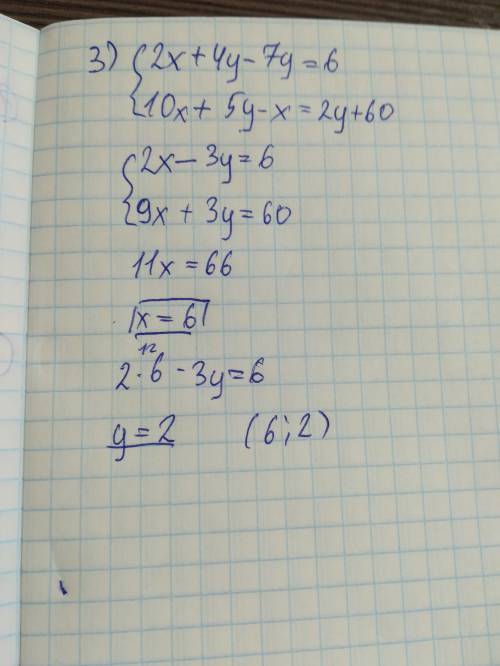 3) { 2x + 4y - 7y = 6
10x + 5y - x = 2y + 60
{ 2x - 3y = 6
9x + 3y = 60
11x = 66
x = 6
12
2 · 6 - 3y = 6
y = 2 (6; 2)